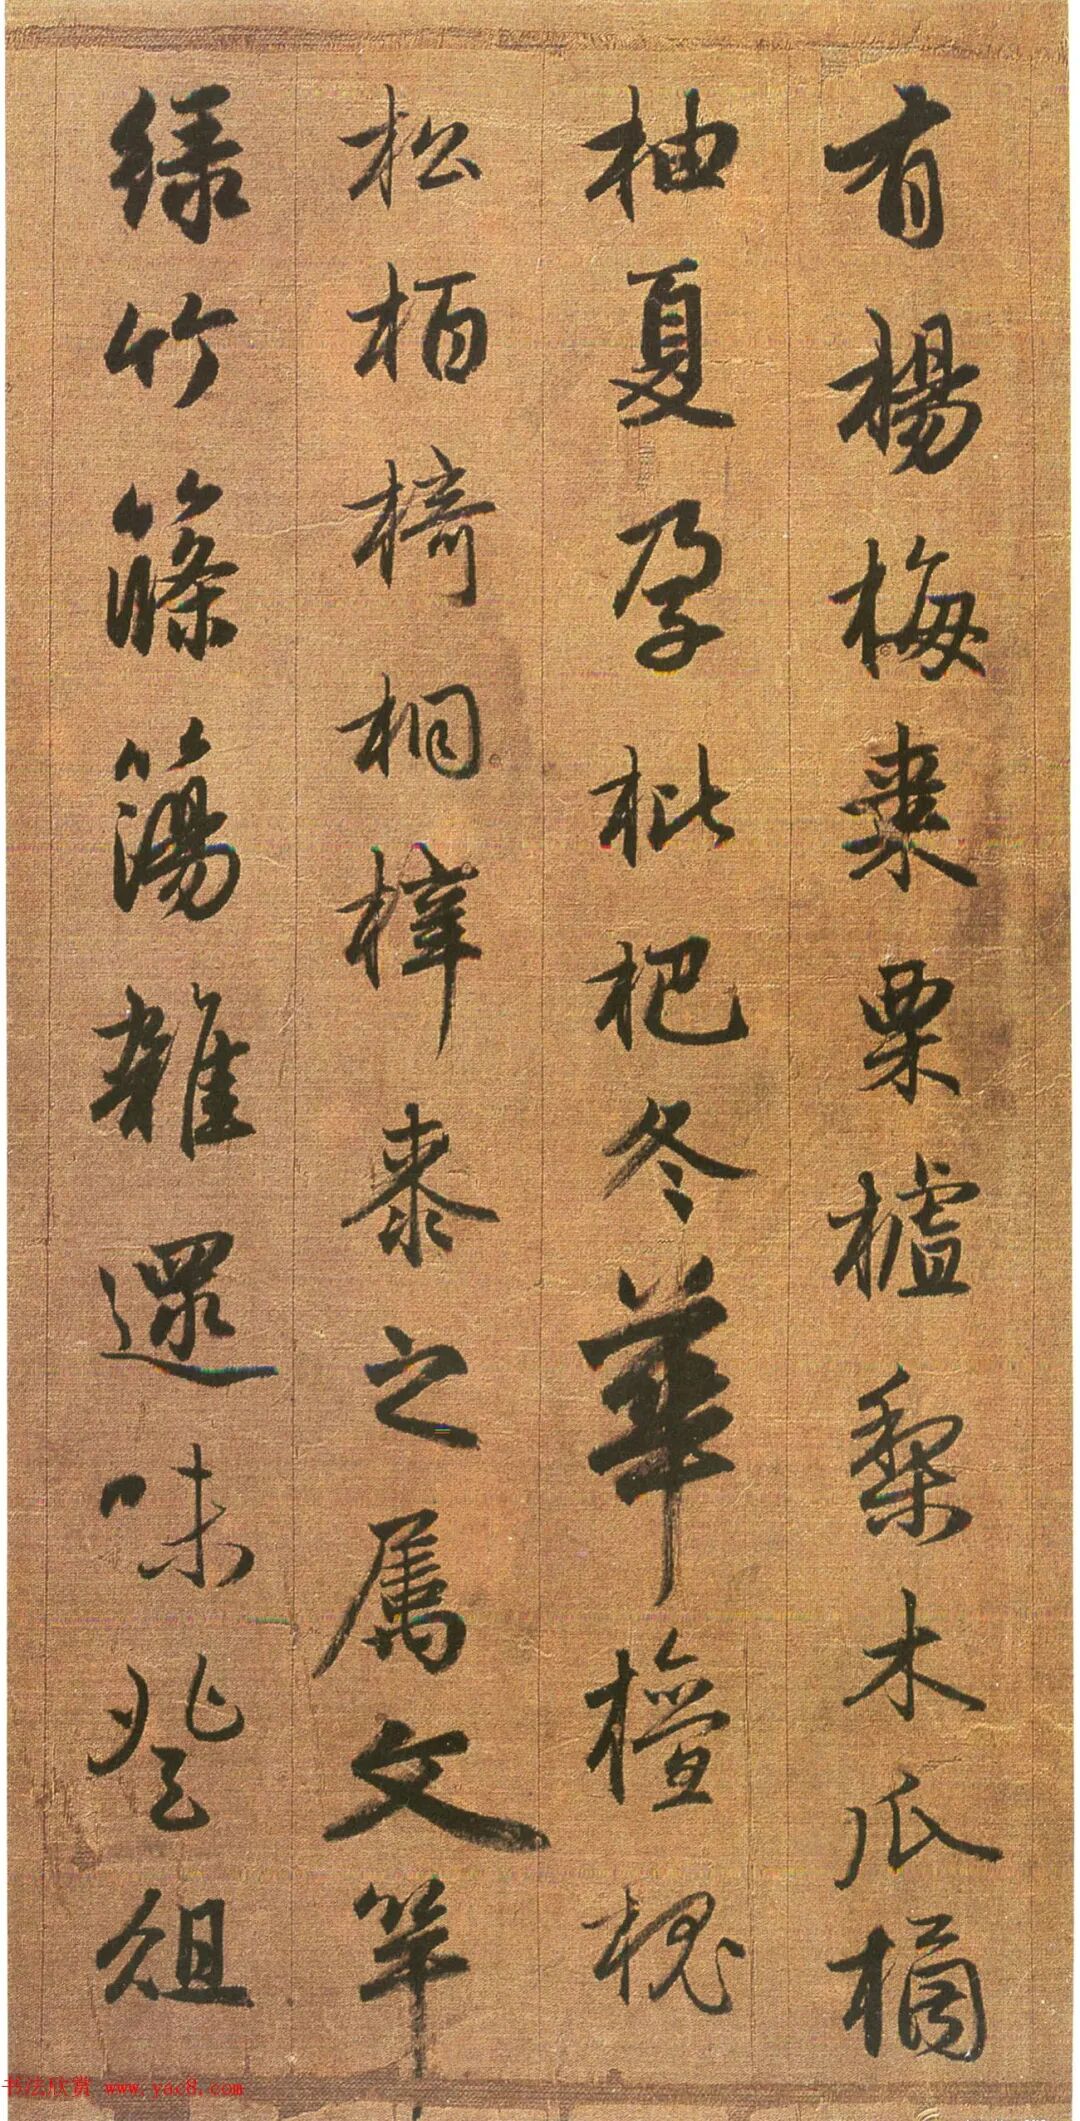 有楊梅棗栗櫨梨木瓜橘
柚夏孕枇杷冬華檀槐
松栢椅桐梓桼之屬文竿
綠竹篠簜雜遝味登俎
书法欣赏 www.yac8.com